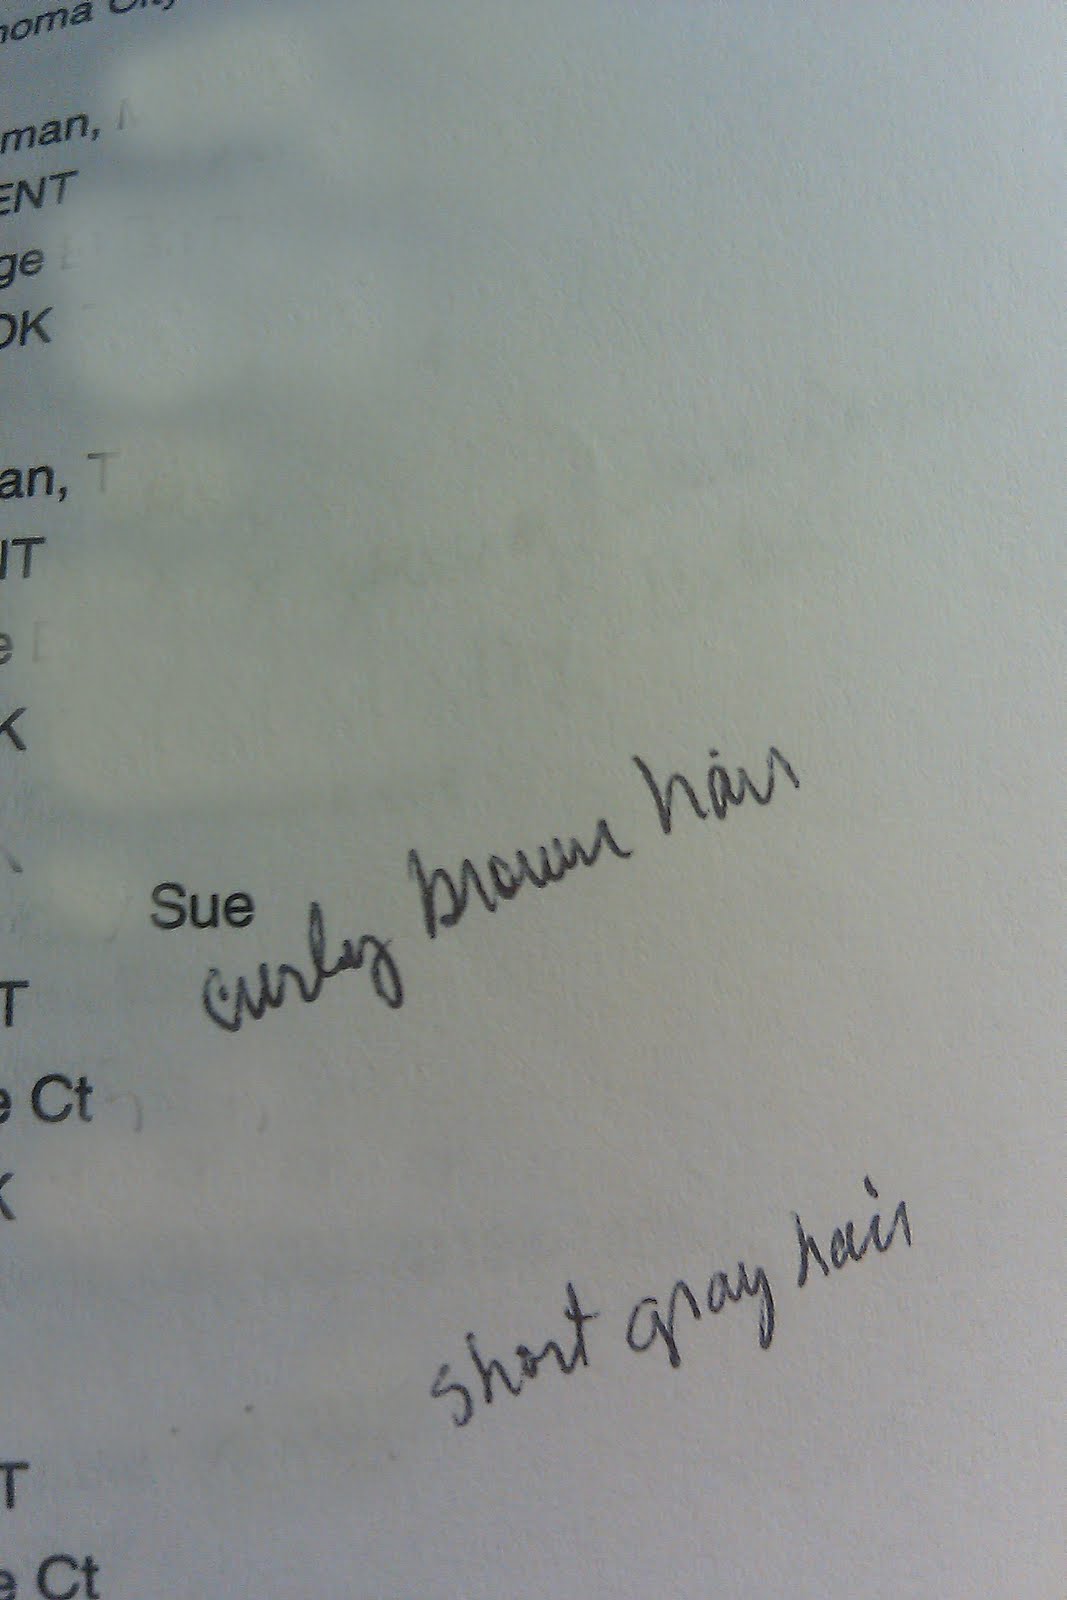 man,
ENT
ge
OK
an, T
NT
e
K
Sue
curly brown hair
T
e Ct
K
short gray hair
T
e Ct